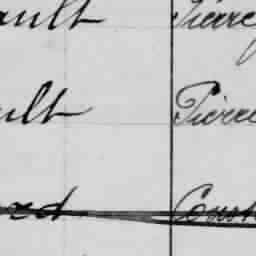 ault Pierre
ult Pierre
rd Const